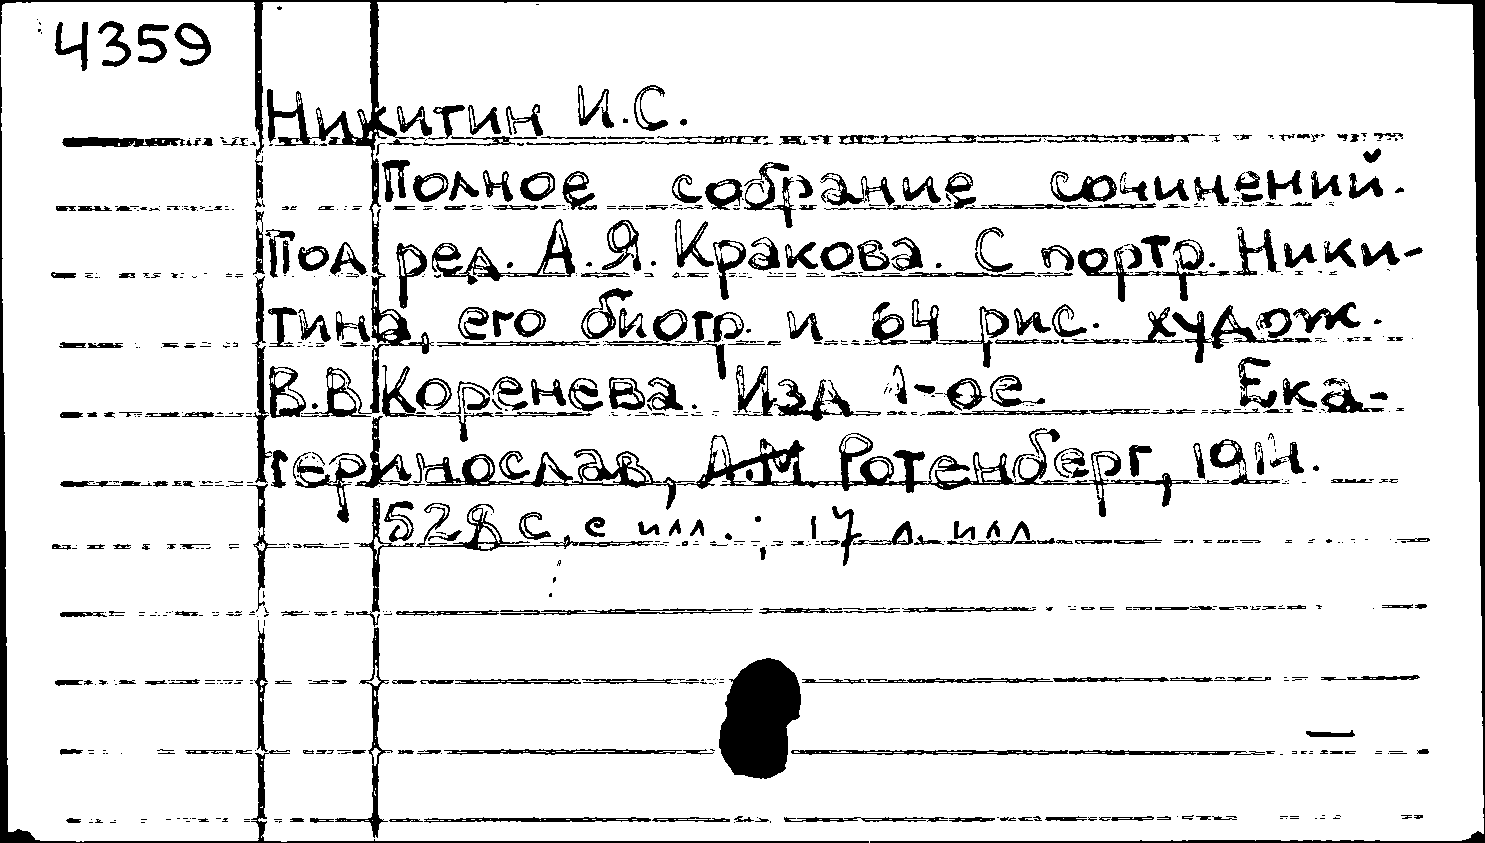 4359
Никитин И.С.
Полное собрание сочинений.
Под ред. А.Я. Кракова. С портр. Ники-
тина, его биогр. и 64 рис. худож.
В.В Коренева. Изд 1-ое. Ека-
теринослав, А.М. Ротенберг, 1914.
528 с. с илл.; 17 л. илл